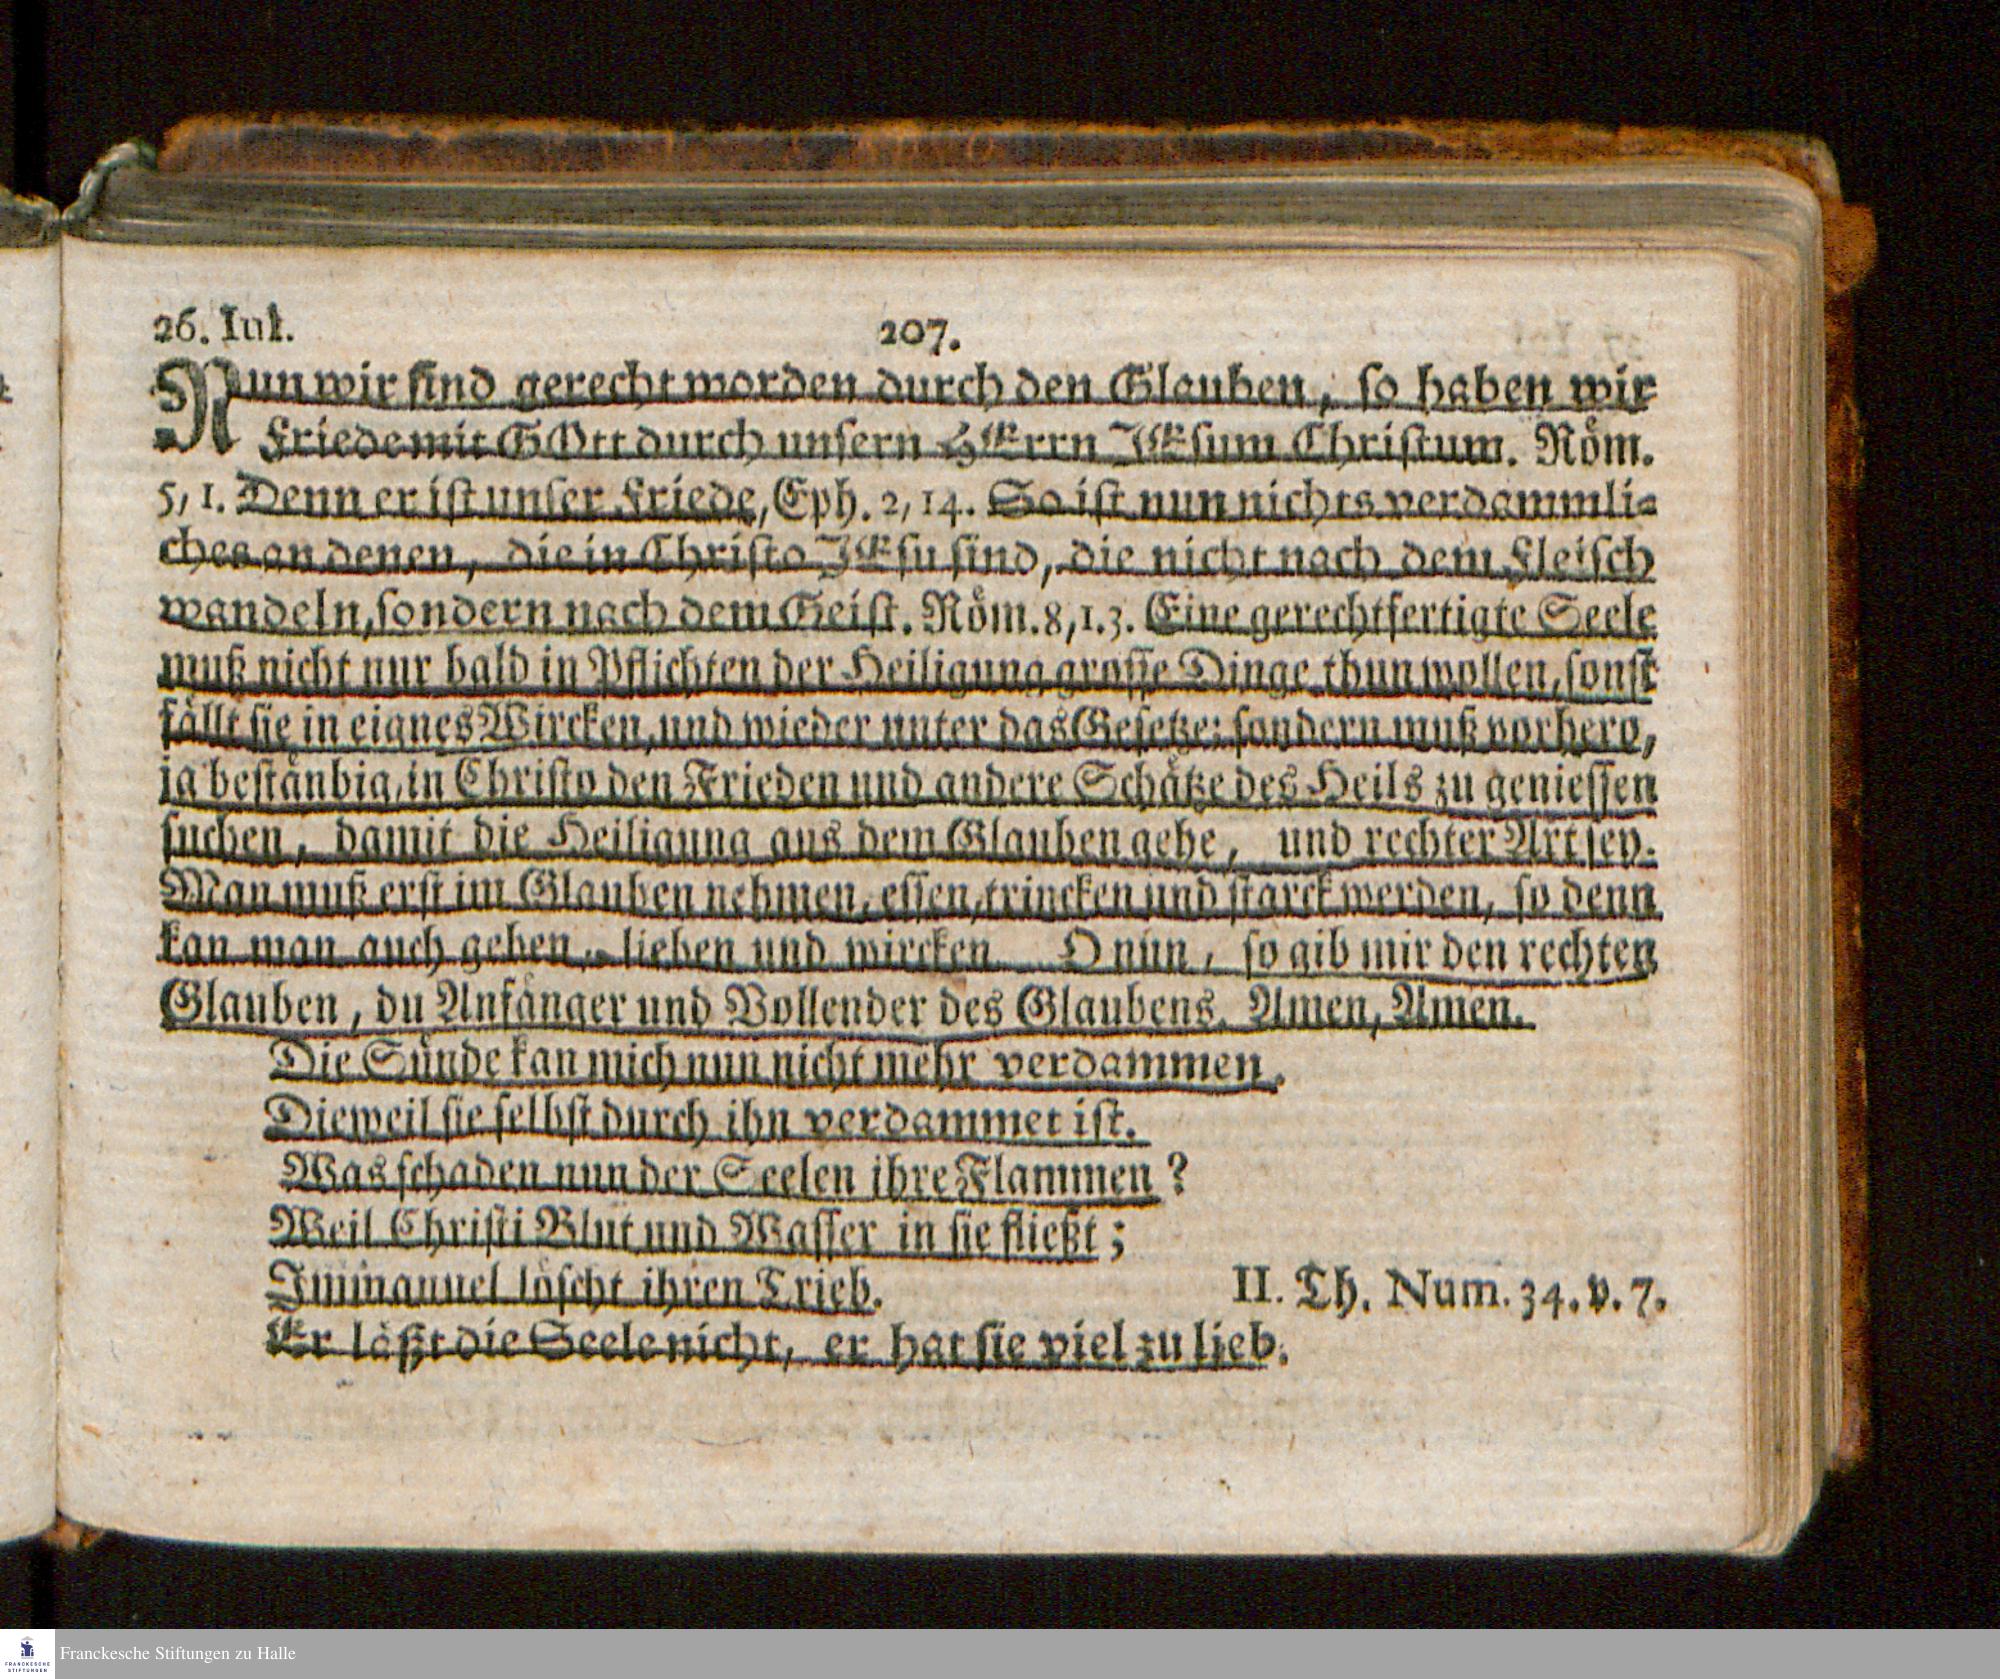 26. Iul.
207.
Nun wir sind gerecht worden durch den Glauben, so haben wir
Friede mit GOtt durch unsern HErrn JEsum Christum. Röm.
5, 1. Denn er ist unser Friede, Eph. 2, 14. So ist nun nichts verdammli-
ches an denen, die in Christo JEsu sind, die nicht nach dem Fleisch
wandeln, sondern nach dem Geist. Röm. 8, 1. 3. Eine gerechtfertigte Seele
muß nicht nur bald in Pflichten der Heiligung grosse Dinge thun wollen, sonst
fällt sie in eignes Wircken, und wieder unter das Gesetze; sondern muß vorhero,
ja beständig, in Christo den Frieden und andere Schätze des Heils zu geniessen
suchen, damit die Heiligung aus dem Glauben gehe, und rechter Art sey.
Man muß erst im Glauben nehmen, essen, trincken und starck werden, so denn
kan man auch geben, lieben und wircken. O nun, so gib mir den rechten
Glauben, du Anfänger und Vollender des Glaubens. Amen, Amen.
Die Sünde kan mich nun nicht mehr verdammen,
Dieweil sie selbst durch ihn verdammet ist.
Was schaden nun der Seelen ihre Flammen?
Weil Christi Blut und Wasser in sie fließt;
Immanuel löscht ihren Trieb. II. Th. Num. 34. v. 7.
Er läßt die Seele nicht, er hat sie viel zu lieb.
FRANCKESCHE
STIFTUNGEN
Franckesche Stiftungen zu Halle